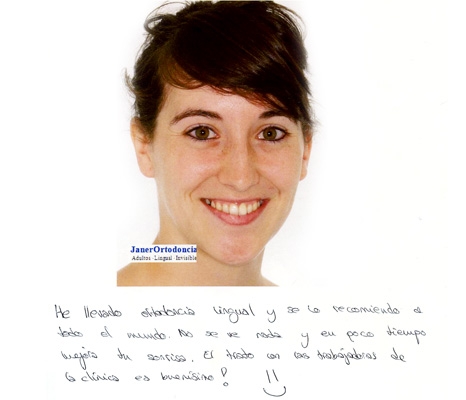 JanerOrtodoncia
Adultos · Lingual · Invisible
He llevado ortodoncia lingual y se lo recomiendo a
todo el mundo. No se ve nada y en poco tiempo
mejora tu sonrisa. El trato con las trabajadoras de
la clínica es buenísimo!